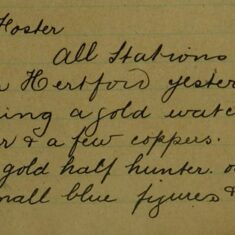 Foster
All Stations
Hertford yester
ing a gold watc
r & a few coppers.
gold half hunter. o
mall blue figures &